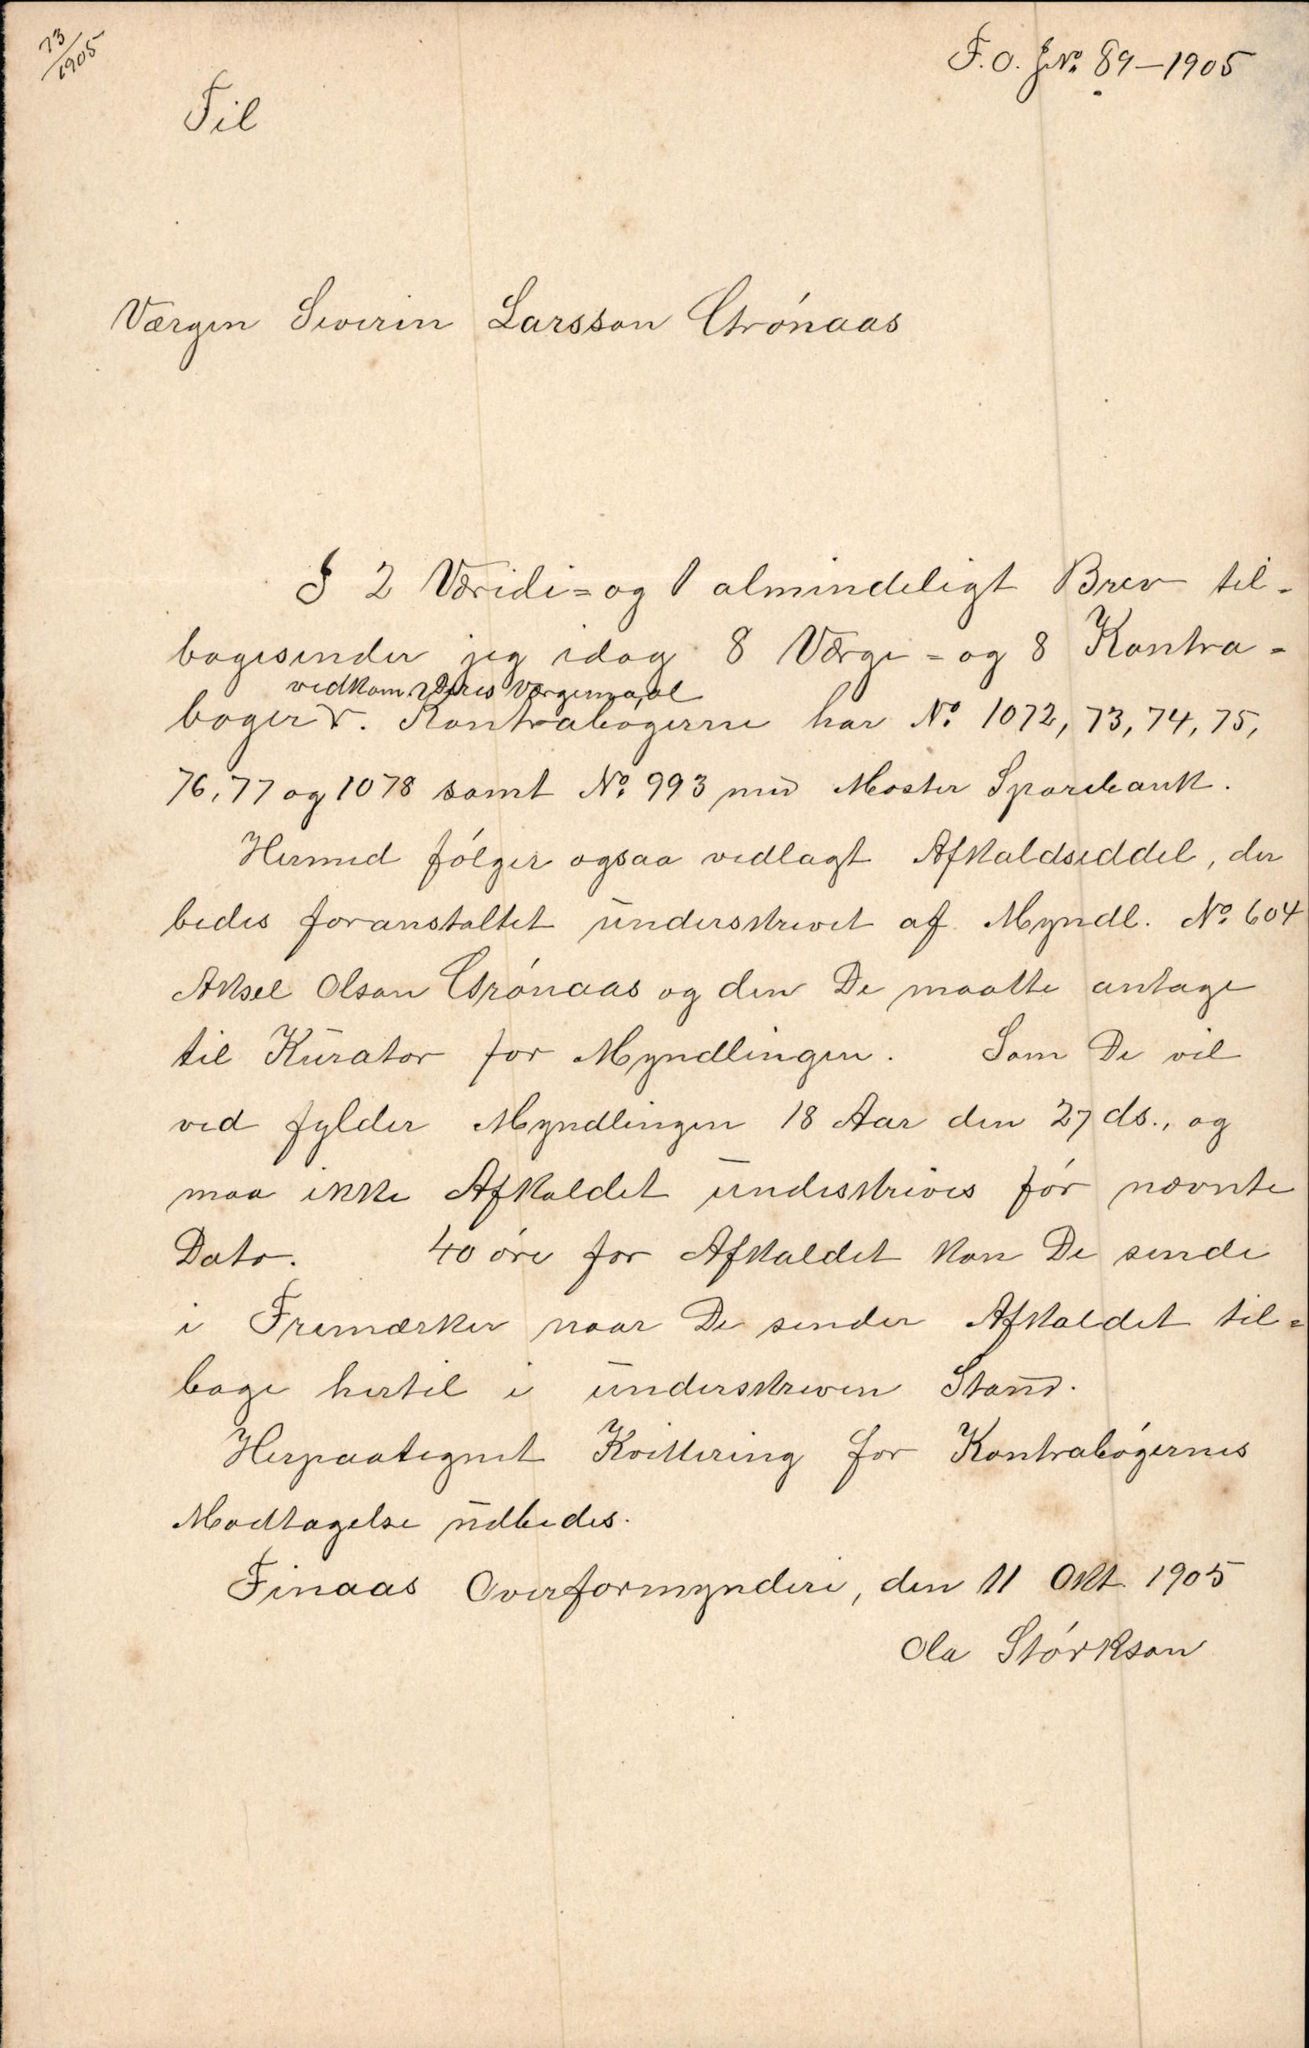 73/1905
F.O. J№. 89-1905
Til
Værgen Severin Larsson Grónaas
I 2 Væridi= og 1 almindeligt Brev til-
bagesender jeg idag 8 Værge= og 8 Kontra-
vedkom. Deres Værgemaal
bøger v. Kontrabøgerne har №. 1072, 73, 74, 75,
76, 77 og 1078 samt №. 993 med Moster Sparebank.
Hermed fólger ogsaa vedlagt Afkaldseddel, der
bedes foranstaltet ūnderskrevet af Myndl. №. 604
Aksel Olson Grónaas og den De maatte antage
til Kūrator for Myndlingen. Som De vil
ved fylder Myndlingen 18 Aar den 27 ds., og
maa ikke Afkaldet ūndeskrives fór nævnte
Dato. 40 óre for Afkaldet kan De sende
i Fremærker naar De sender Afkaldet til=
bage hertil i ūnderskreven Stand.
Herpaategnet Kvittering for Kontrabógernes
Modtagelse ūdbedes.
Finaas Overformynderi, den 11 Okt. 1905
Ola Stórkson